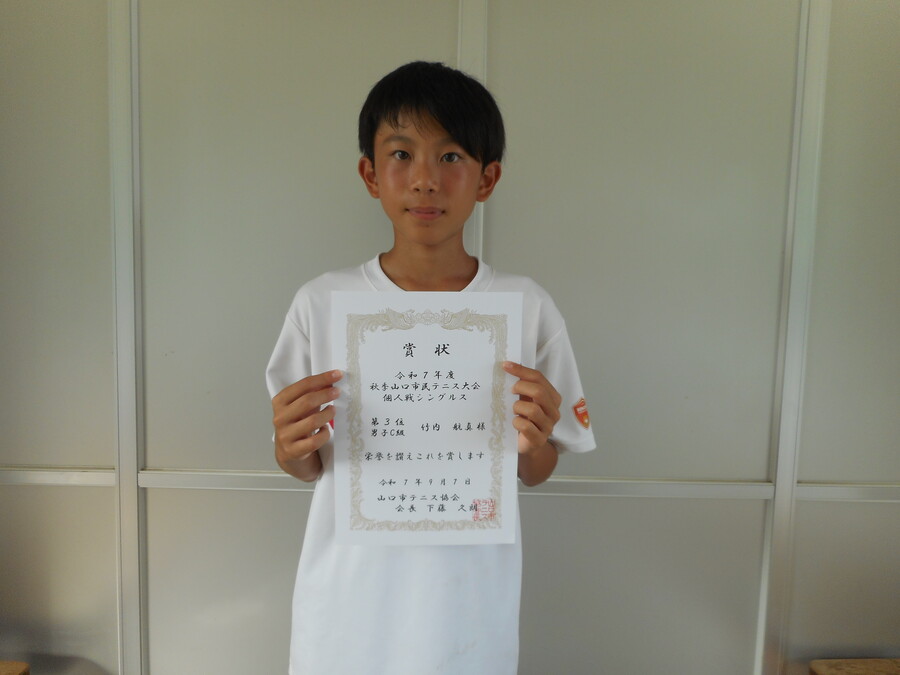 賞状
令和7年度
秋季山口市民テニス大会
個人戦シングルス
第3位
男子C級 竹内 航真様
栄誉を讃えこれを賞します
令和7年9月7日
山口市テニス協会
会長 下藤 久